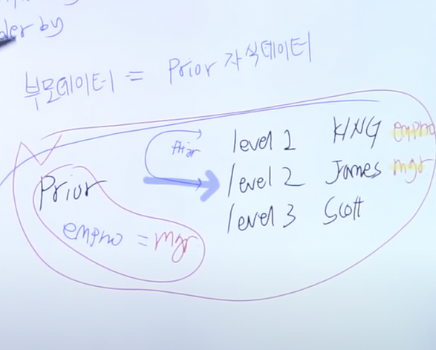 der by
부모데이터 = Prior 자식데이터
Prior level 1 KING empno
level 2 James mgr
level 3 Scott
Prior
empno = mgr